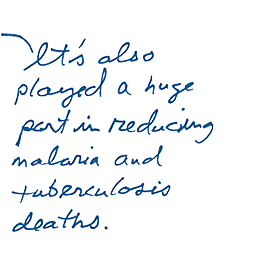 It's also
played a huge
part in reducing
malaria and
tuberculosis
deaths.